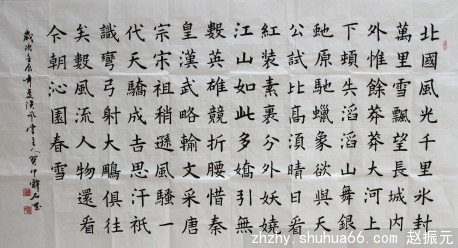 北國風光千里冰封
萬里雪飄望長城內
外惟餘莽莽大河上
下頓失滔滔山舞銀
蛇原馳蠟象欲與天
公試比高須晴日看
紅裝素裹分外妖嬈
江山如此多嬌引無
數英雄競折腰惜秦
皇漢武略輸文采唐
宗宋祖稍遜風騷一
代天驕成吉思汗祇
識彎弓射大鵰俱往
矣數風流人物還看
今朝沁園春雪
歲次壬辰年
zhzhy.shuhua66.com 赵振元